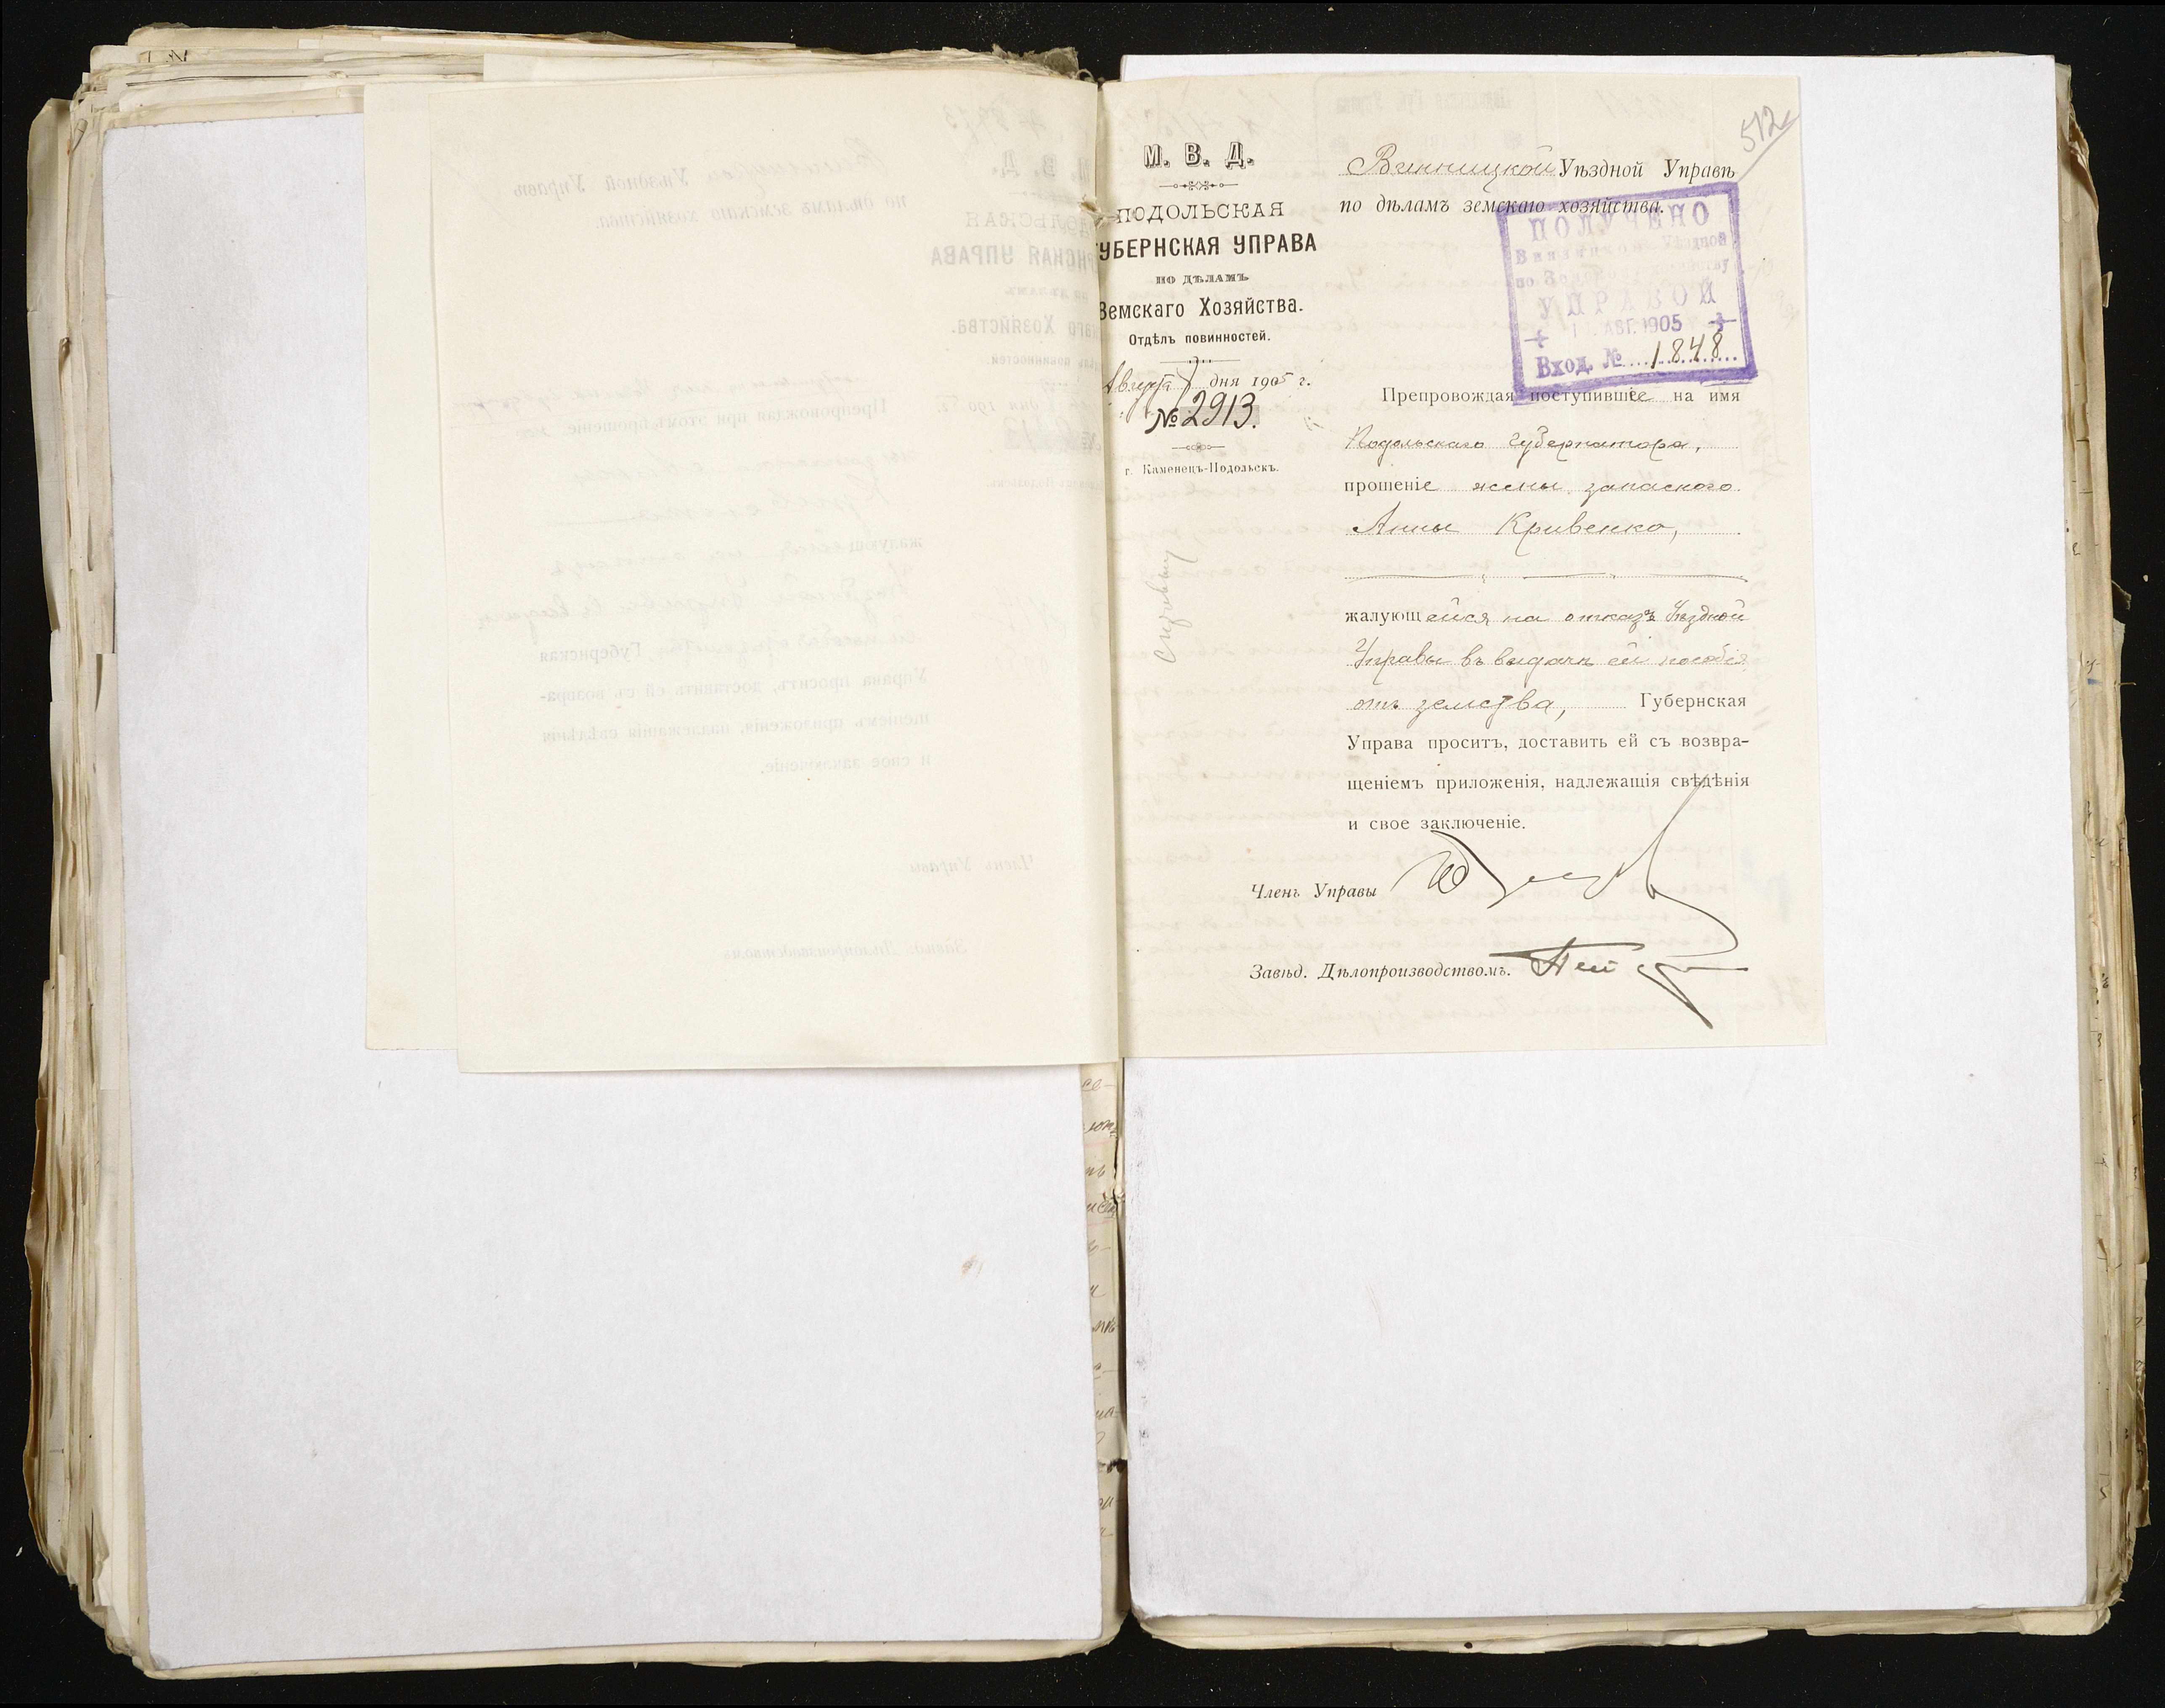 512
М. В. Д.
ПОДОЛЬСКАЯ
ГУБЕРНСКАЯ УПРАВА
ПО ДѢЛАМЪ
Земскаго Хозяйства.
Отдѣлъ повинностей.
Августа 7 дня 1905 г.
№ 2913.
г. Каменецъ-Подольскъ.
Винницкой Уѣздной Управѣ
по дѣламъ земскаго хозяйства.
ПОЛУЧЕНО
Винницкой Уѣздной
по Земскому Хозяйству
УПРАВОЙ
1 АВГ. 1905
Вход. № 1848
Препровождая поступившіе на имя
Подольскаго Губернатора,
прошеніе жены запаснаго
Анны Кривенко,
жалующейся на отказъ Уѣздной
Управы въ выдачѣ ей пособія
отъ земства, Губернская
Управа проситъ, доставить ей съ возвра-
щеніемъ приложенія, надлежащія свѣдѣнія
и свое заключеніе.
Членъ Управы
Завѣд. Дѣлопроизводствомъ.